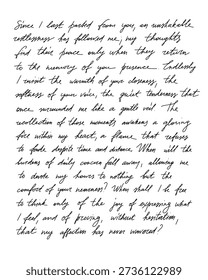 Since I last parted from you, an unshakable
restlessness has followed me, my thoughts
find their peace only when they return
to the memory of your presence. Endlessly
I recount the warmth of your closeness, the
softness of your voice, the quiet tenderness that
once surrounded me like a gentle veil. The
recollection of those moments awakens a glowing
fire within my heart, a flame that refuses
to fade despite time and distance. When will the
burdens of daily concern fall away, allowing me
to devote my hours to nothing but the
comfort of your nearness? When shall I be free
to think only of the joy of expressing what
I feel, and of proving, without hesitation,
that my affection has never wavered?
shutterstock.com · 2736122989